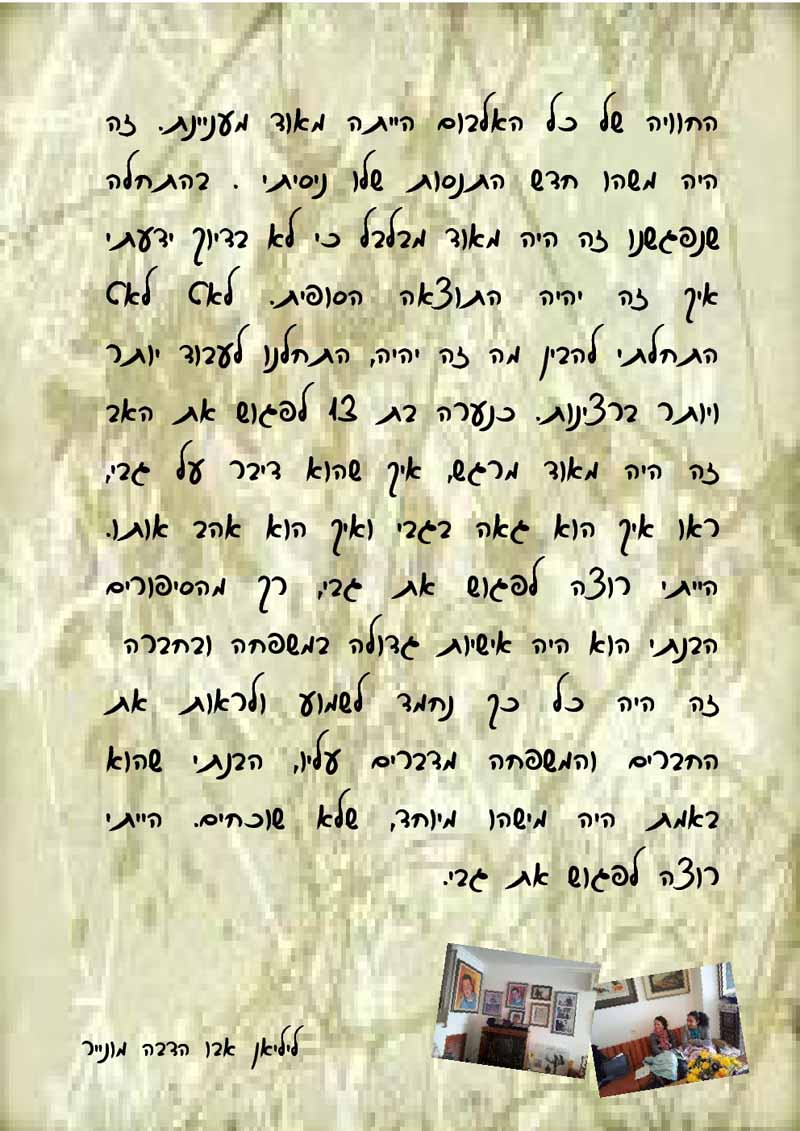 החוויה של כל האלבום הייתה מאוד מעניינת. זה
היה משהו חדש התנסות שלו ניסיתי . בהתחלה
שנפגשנו זה היה מאוד מבלבל כי לא בדיוק ידעתי
איך זה יהיה התוצאה הסופית. לאט לאט
התחלתי להבין מה זה יהיה, התחלנו לעבוד יותר
ויותר ברצינות. כנערה בת 13 לפגוש את האב
זה היה מאוד מרגש, איך שהוא דיבר על גבי,
ראו איך הוא גאה בגבי ואיך הוא אהב אותו.
הייתי רוצה לפגוש את גבי, רק מהסיפורים
הבנתי הוא היה אישיות גדולה במשפחה ובחברה
זה היה כל כך נחמד לשמוע ולראות את
החברים והמשפחה מדברים עליו, הבנתי שהוא
באמת היה מישהו מיוחד, שלא שוכחים. הייתי
רוצה לפגוש את גבי.
ליליאן אבו הדבה מונייר